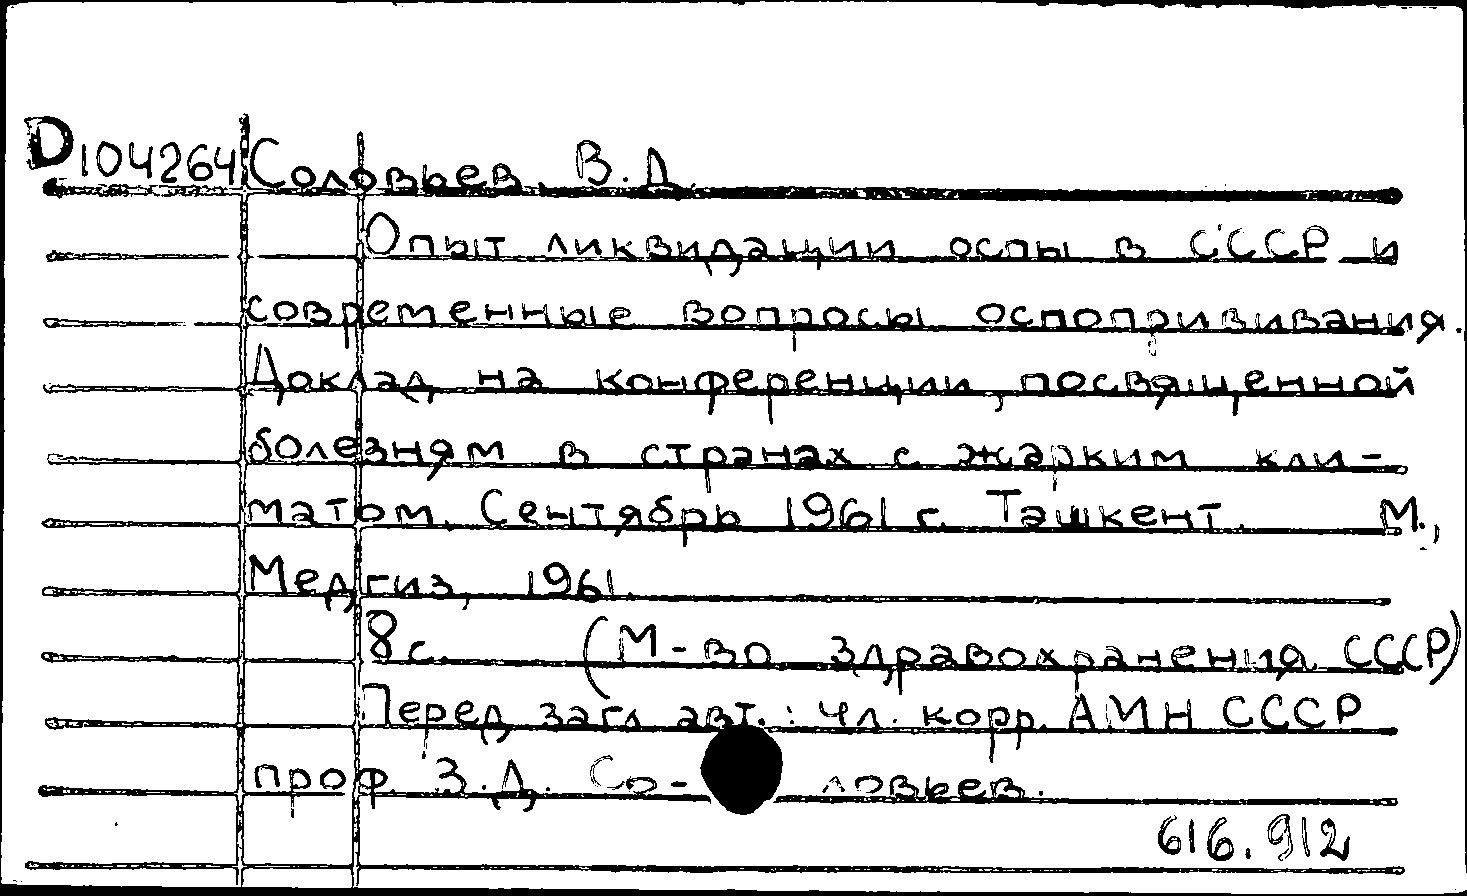 D104264 Соловьев В.Д.
Опыт ликвидации оспы в СССР и
современные вопросы оспопрививания.
Доклад на конференции, посвященной
болезням в странах с жарким кли-
матом. Сентябрь 1961 г. Ташкент. М.,
Медгиз, 1961.
8 с. (М-во здравохранения СССР)
Перед загл. авт.: чл. корр. АМН СССР
проф. З.Д. Со- ловьев.
616.912